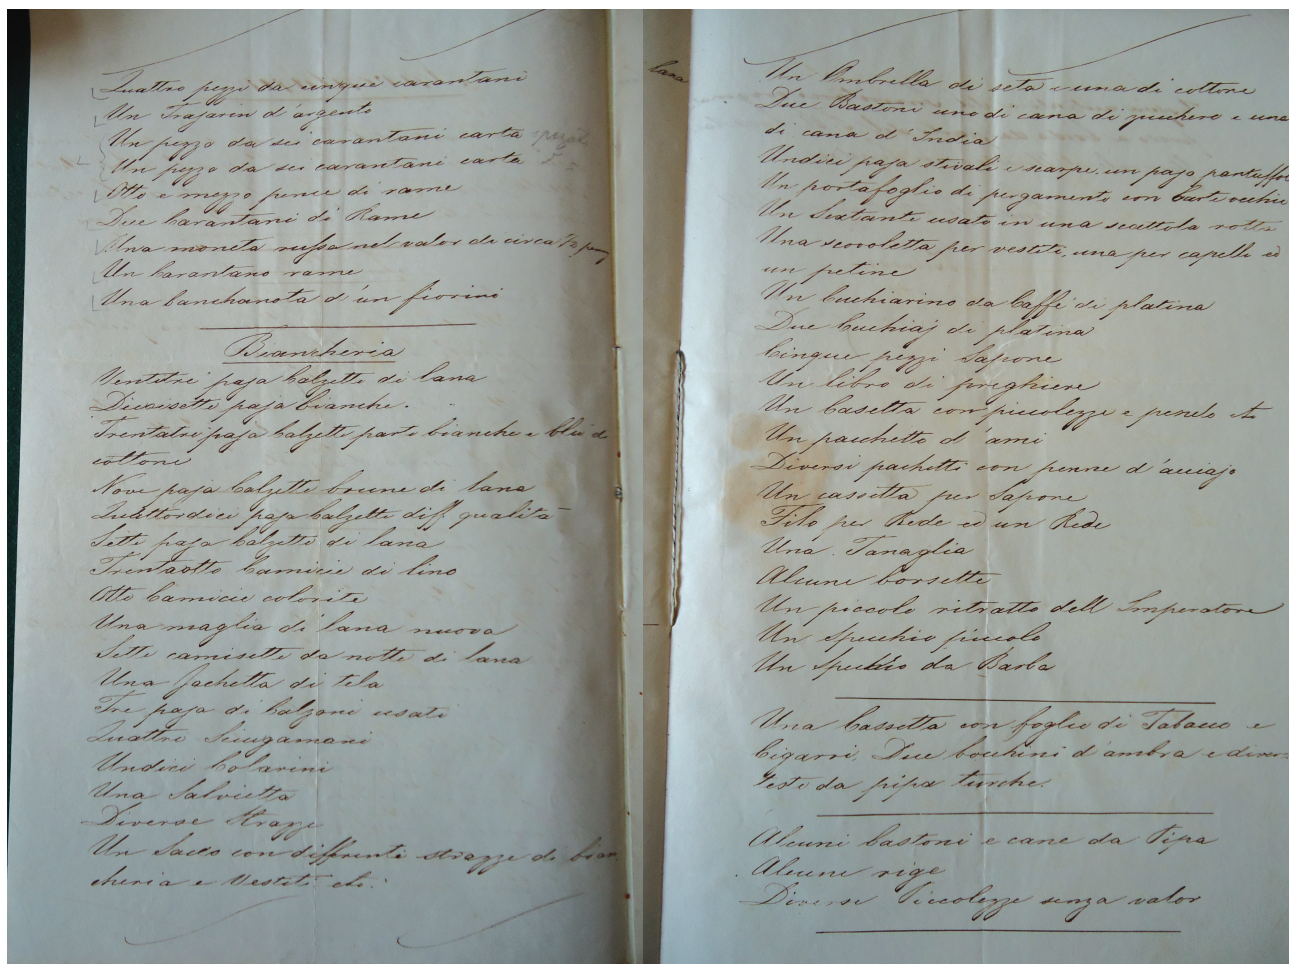 Quattro pezzi da cinque carantani
Un Trajarin d'argento
Un pezzo da sei carantani carta
Un pezzo da sei carantani carta
Otto e mezzo pence di rame
Due Carantani di Rame
Una moneta russa nel valor di circa 1/2
Un Carantano rame
Una banchanota d'un fiorini
Biancheria
Ventitri paja Calzette di lana
Diecisette paja bianche.
Trentatri paja Calzette parte bianche e bleu di
cottone
Nove paja Calzette brune di lana
Quattordici paja Calzette diff. qualità
Sette paja Calzette di lana
Trentaotto Camicie di lino
Otto Camicie colorite
Una maglia di lana nuova
Sette camisette da notte di lana
Una Jachetta di tela
Tre paja di Calzoni usati
Quattri Siugamani
Undici Colarini
Una Salvietta
Diverse Strazze
Un Sacco con differenti strazze di bian
cheria e Vestiti
lana
Un Ombrella di seta e una di cottone
Due Bastoni uno di cana di zucchero e una
di cana d'India
Undici paja stivali e scarpe, un pajo pantuffo
Un portafoglio di pergamento con Carte vecchie
Un Sextante usato in una scattola rotta
Una scovoletta per vestiti, una per capelli ed
un petine
Un Cuchiarino da Caffè di platina
Due Cuchiaj di platina
Cinque pezzi Sapone
Un libro di preghiere
Un Casetta con piccolezze e penelo
Un pacchetto d'ami
Diversi pachetti con penne d'acciajo
Un cassetta per Sapone
Filo per Rede ed un Rede
Una Tanaglia
Alcune borsette
Un piccolo ritratto dell Imperatore
Un Specchio piccolo
Un Specchio da Barba
Una Cassetta con foglie di Tabacco e
Cigarri, Due bocchini d'ambra e diver=
Teste da pipa turche.
Alcuni bastoni e cane da Pipa
Alcune rige
Diverse Piccolezze senza valor